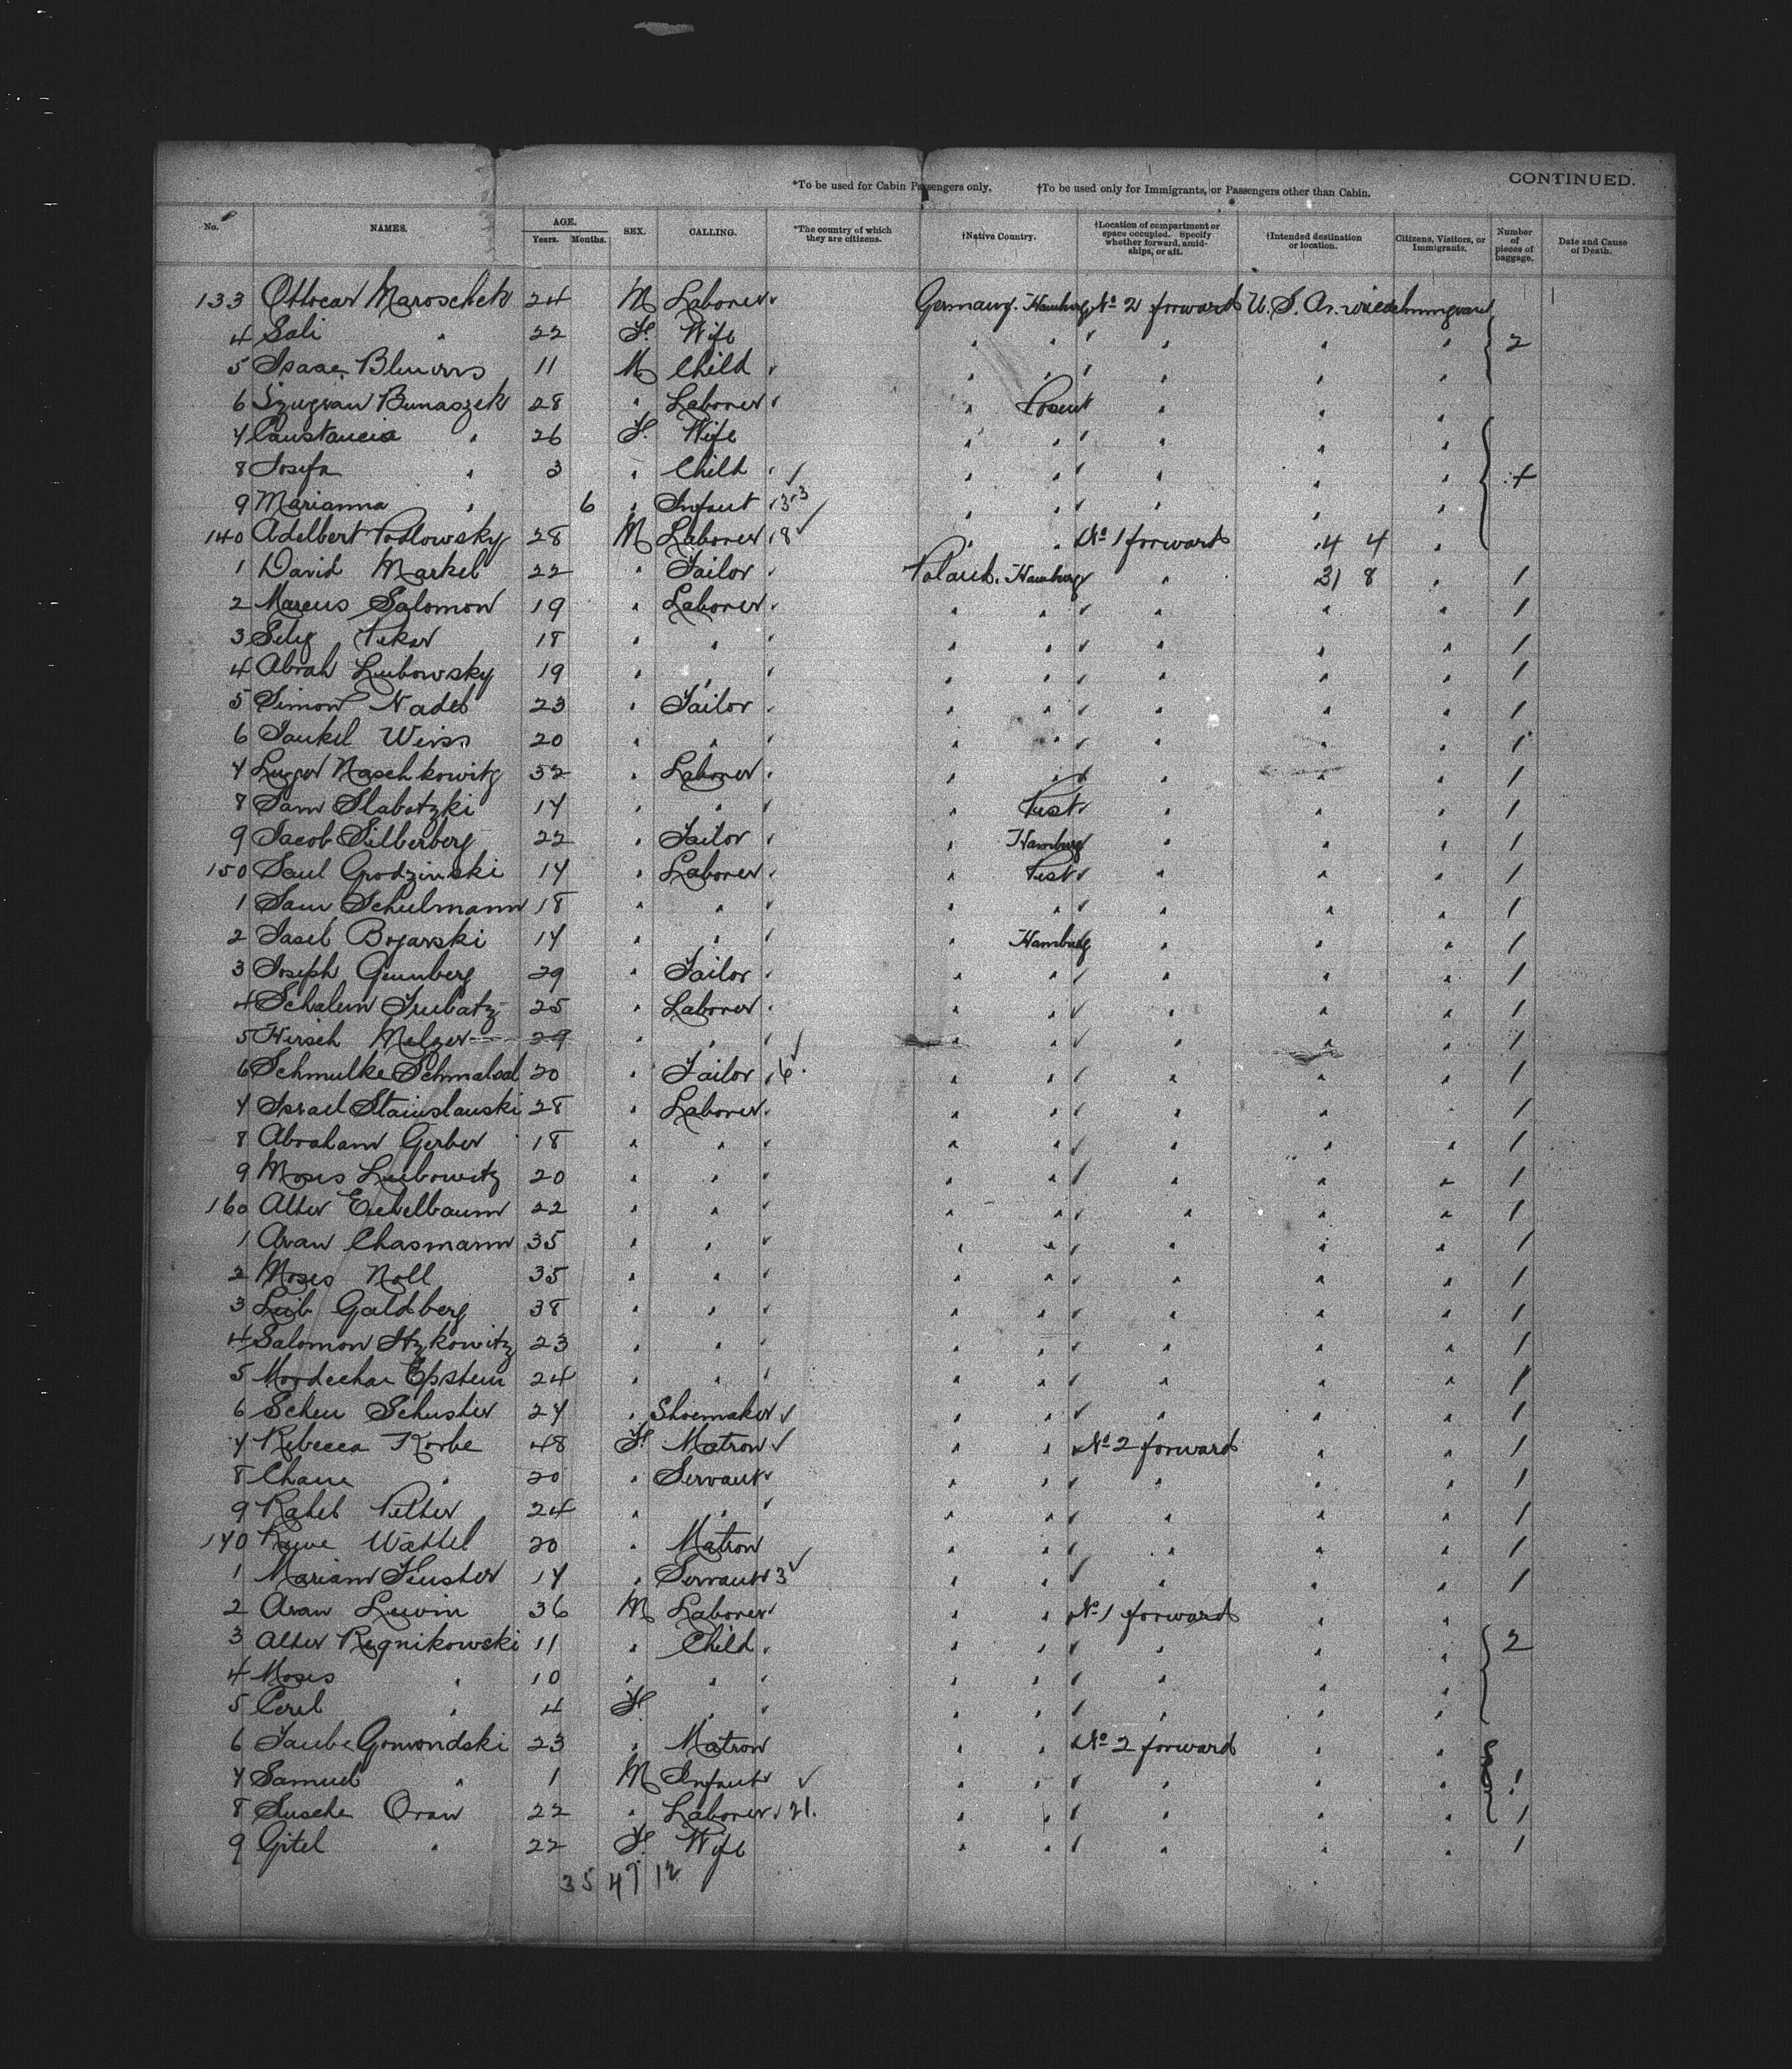 CONTINUED.
*To be used for Cabin Passengers only. †To be used only for Immigrants, or Passengers other than Cabin.
No. NAMES. AGE. Years. Months. SEX. CALLING. *The country of which they are citizens. †Native Country. †Location of compartment or space occupied. Specify whether forward, amidships, or aft. †Intended destination or location. Citizens, Visitors, or Immigrants. Number of pieces of baggage. Date and Cause of Death.
133 Ottocar Maroschek 24 M Laborer Germany. Hamburg No 2 forward U. S. A.
4 Sali " 22 F. Wife " " " " " 2
5 Isaac 11 M Child " " " " "
6 Bunaszek 28 " Laborer " Posen " " "
7 Constancia " 26 F. Wife " " " " "
8 Josefa " 3 " Child " " " " "
9 Marianna " 6 " Infant " " " " "
140 Adelbert Podlowsky 28 M Laborer 8 " " No 1 forward 4 4 "
1 David Markel 22 " Tailor Poland. Hamburg " 31 8 " 1
2 Marcus Salomon 19 " Laborer " " " " " 1
3 Selig Pekar 18 " " " " " " " 1
4 Abrah Leibowsky 19 " " " " " " " 1
5 Simon Nadel 23 " Tailor " " " " " 1
6 Jankel Weiss 20 " " " " " " " 1
7 Naschkowitz 32 " Laborer " " " " " 1
8 Sam Slabotzki 17 " " " Pest " " " 1
9 Jacob Silberberg 22 " Tailor " Hamburg " " " 1
150 Saul Grodzinski 17 " Laborer " Pest " " " 1
1 Sam Schulmann 18 " " " " " " " 1
2 Bojarski 17 " " " Hamburg " " " 1
3 Joseph Grunberg 29 " Tailor " " " " " 1
4 Schalem 25 " Laborer " " " " " 1
5 Hirsch Melzer 29 " " " " " " " 1
6 Schmulke Schmalsal 20 " Tailor " " " " " 1
7 Israel Stanislauski 28 " Laborer " " " " " 1
8 Abraham Gerber 18 " " " " " " " 1
9 Moses Leibowitz 20 " " " " " " " 1
160 Alter Eichelbaum 22 " " " " " " " 1
1 Aran Chasmann 35 " " " " " " " 1
2 Moses Noll 35 " " " " " " " 1
3 Leib Goldberg 38 " " " " " " " 1
4 Salomon Itzkowitz 23 " " " " " " " 1
5 Mordechai Epstein 24 " " " " " " " 1
6 Schuster 27 " Shoemaker " " " " " 1
7 Rebecca Korbe 48 F. Matron " " No 2 forward " " 1
8 Chane " 20 " Servant " " " " " 1
9 Rahel Pelter 24 " " " " " " " 1
170 Wattel 20 " Matron " " " " " 1
1 Mariam 17 " Servant 3 " " " " " 1
2 Aran Lewin 36 M Laborer " " No 1 forward " "
3 Alter Regnikowski 11 " Child " " " " " 2
4 Moses " 10 " " " " " " "
5 Cerel " 4 F. " " " " " "
6 Taube Gomondski 23 " Matron " " No 2 forward " "
7 Samuel " 1 M Infant " " " " " 1
8 Oran 22 " Laborer 21. " " " " " 1
9 Gitel " 22 F. Wife " " " " " 1
35 47 12